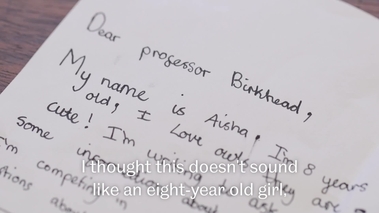 Dear professor Birkhead,
My name is Aisha, I'm 8 years
old, I love owls they are
cute! I'm writing
some
I'm competing in
about
I thought this doesn't sound
like an eight-year old girl.